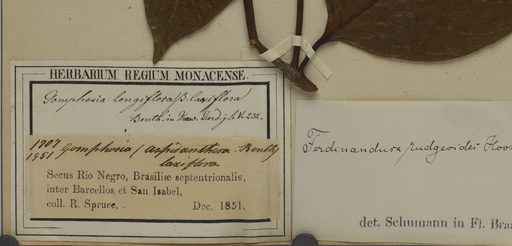 HERBARIUM REGIUM MONACENSE.
Gomphosia longiflora β. laxiflora
Benth. in Kew. Gard. j. b. V. 232.
1907
1951 Gomphosia (aspidanthera. Benth)
laxiflora
Secus Rio Negro, Brasiliæ septentrionalis,
inter Barcellos et San Isabel,
coll. R. Spruce, . Dec. 1851.
Ferdinandusa rudgeoides Hook
det. Schumann in Fl. Bras